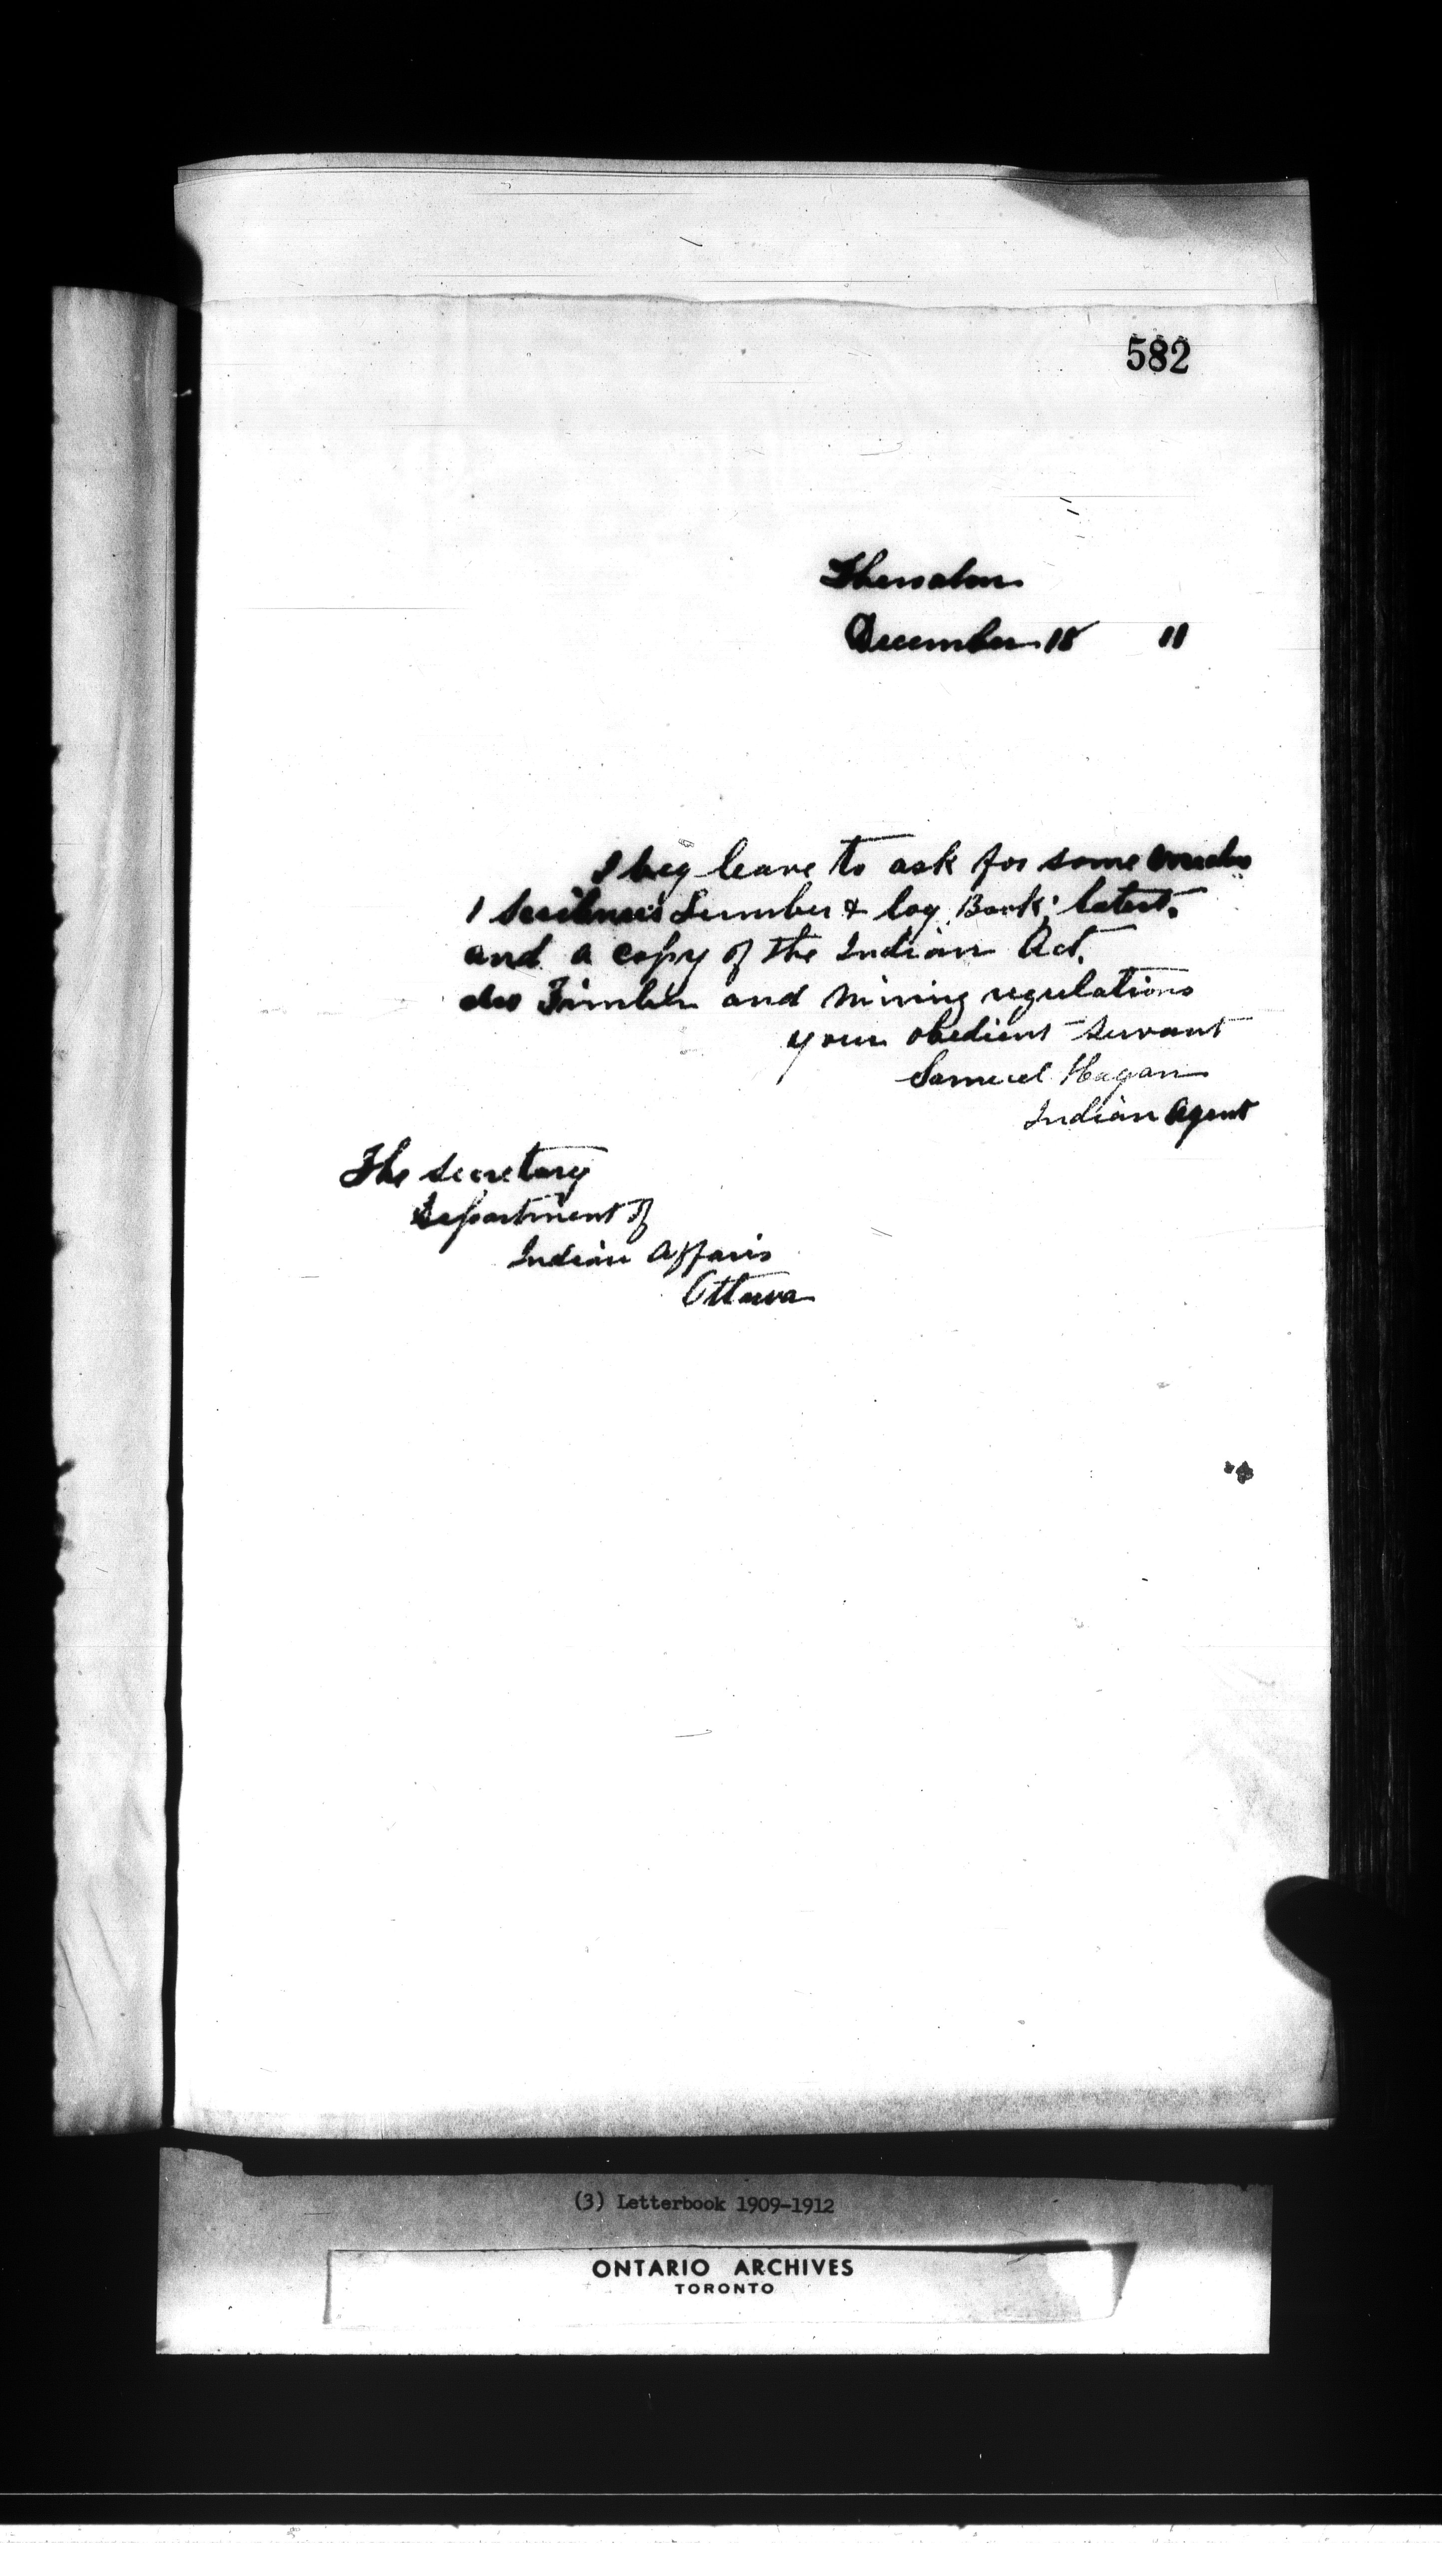 582
Thessalon
December 18 11
I beg leave to ask for some
1 Scribner's Lumber & log Book; latest.
and a copy of the Indian Act.
do Timber and Mining regulations
your obedient servant
Samuel Hagan
Indian Agent
The Secretary
Department of
Indian Affairs
Ottawa
(3) Letterbook 1909-1912
ONTARIO ARCHIVES
TORONTO